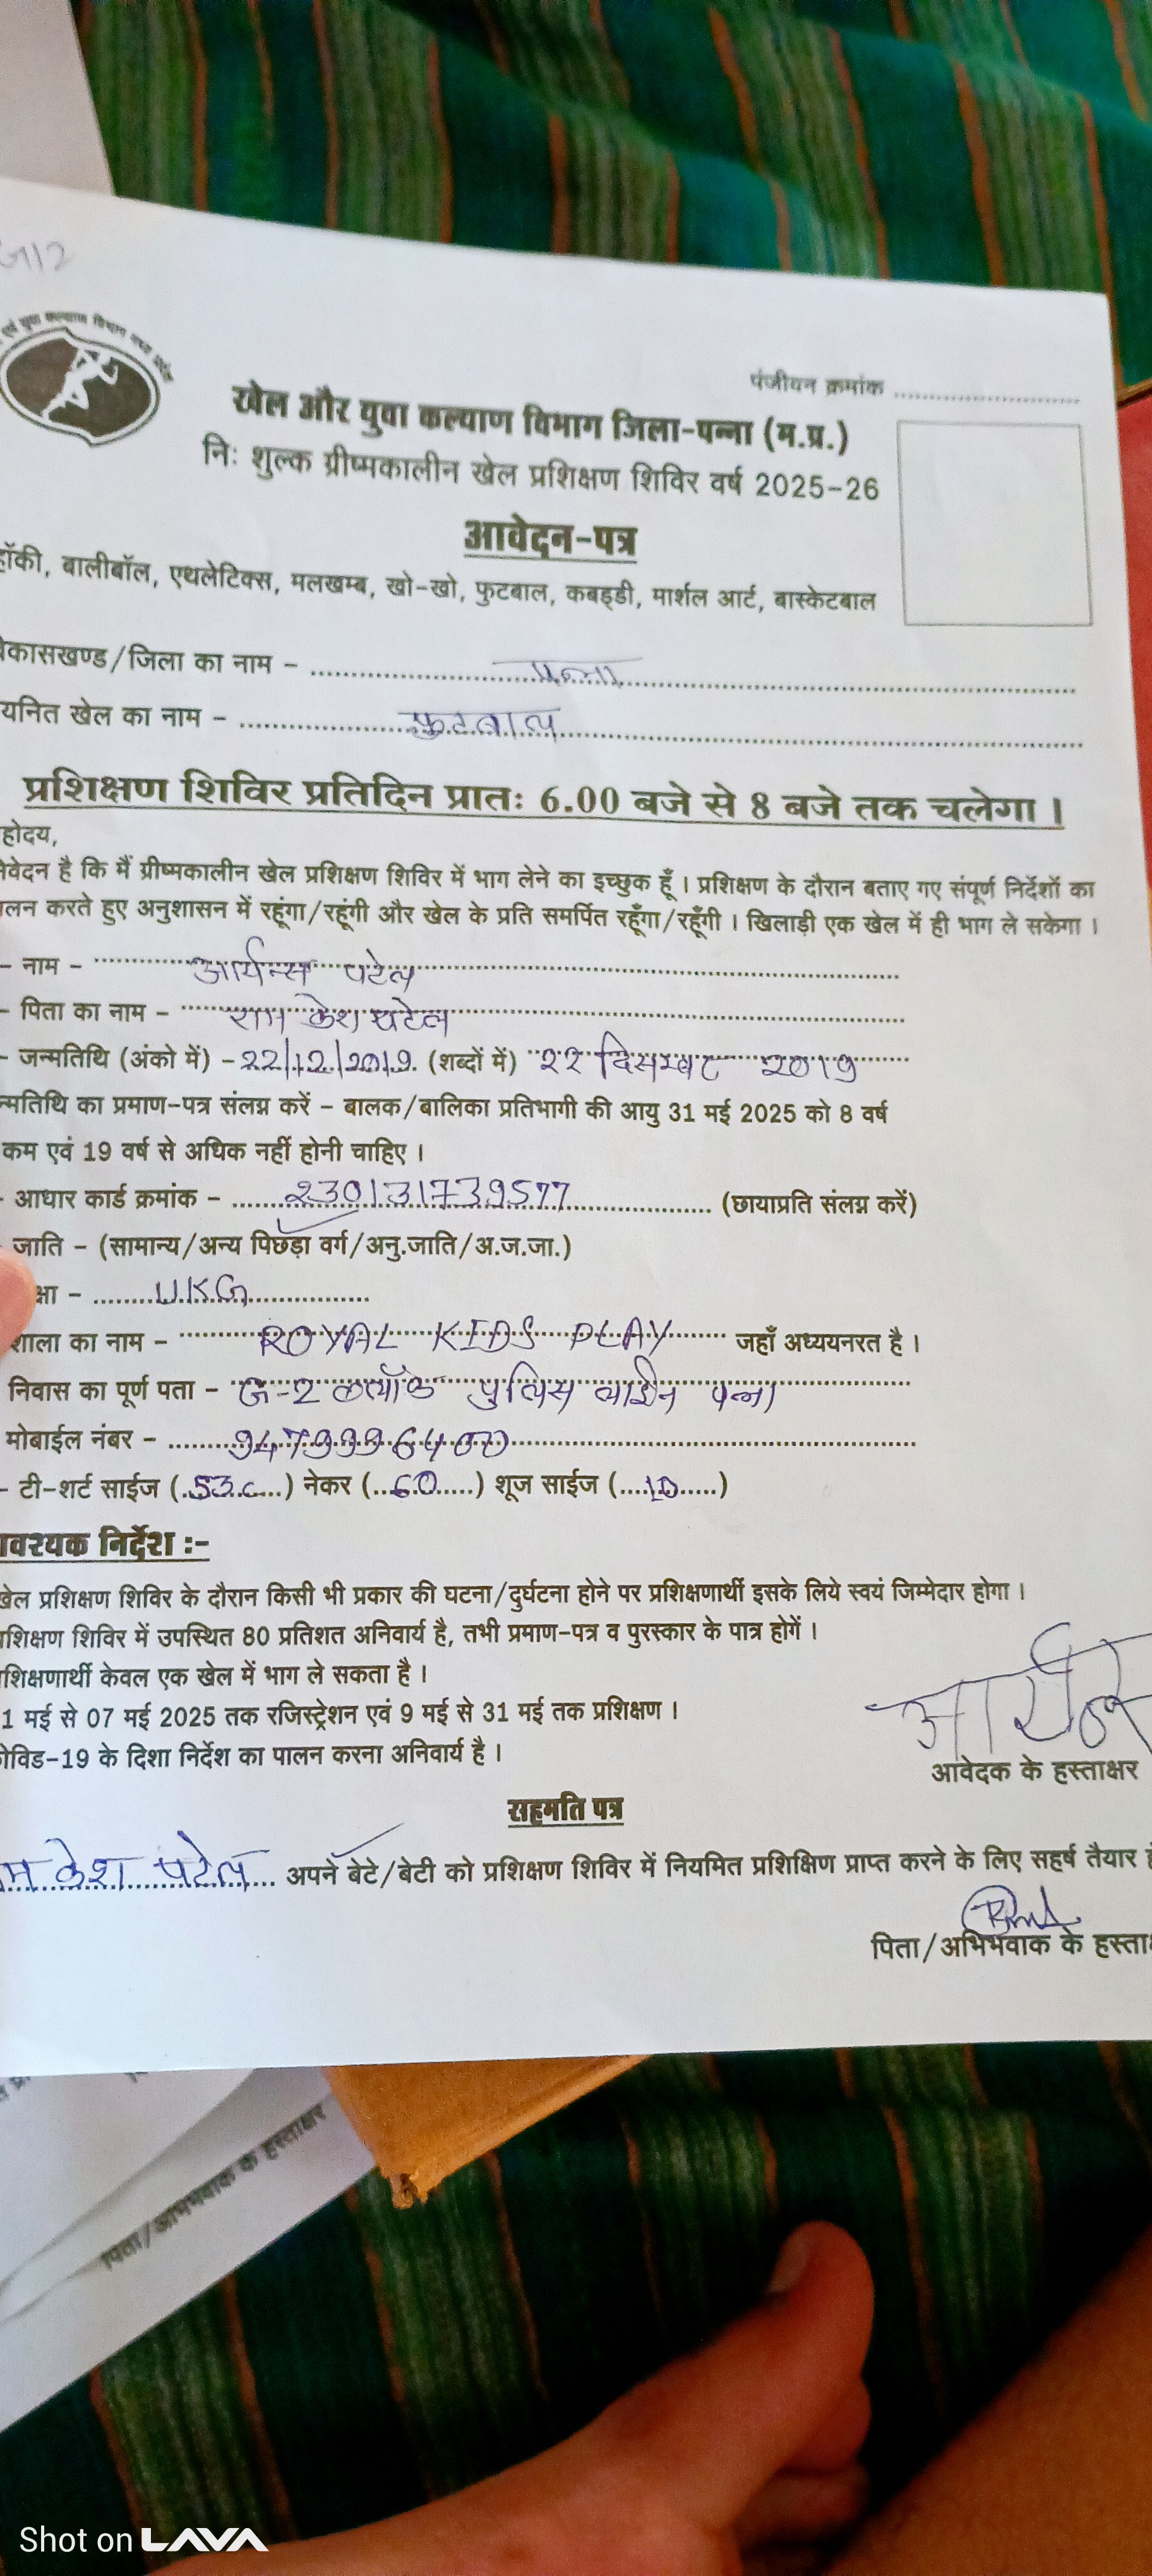 एवं युवा कल्याण विभाग मध्य प्रदेश
पंजीयन क्रमांक
खेल और युवा कल्याण विभाग जिला-पन्ना (म.प्र.)
निः शुल्क ग्रीष्मकालीन खेल प्रशिक्षण शिविर वर्ष 2025-26
आवेदन-पत्र
हॉकी, बालीबॉल, एथलेटिक्स, मलखम्ब, खो-खो, फुटबाल, कबड्डी, मार्शल आर्ट, बास्केटबाल
वेकासखण्ड/जिला का नाम - पन्ना
यनित खेल का नाम - फुटबाल
प्रशिक्षण शिविर प्रतिदिन प्रातः 6.00 बजे से 8 बजे तक चलेगा ।
होदय,
नेवेदन है कि मैं ग्रीष्मकालीन खेल प्रशिक्षण शिविर में भाग लेने का इच्छुक हूँ । प्रशिक्षण के दौरान बताए गए संपूर्ण निर्देशों का
लन करते हुए अनुशासन में रहूंगा/रहूंगी और खेल के प्रति समर्पित रहूँगा/रहूँगी । खिलाड़ी एक खेल में ही भाग ले सकेगा ।
- नाम - आर्यन्स पटेल
- पिता का नाम - राम केश पटेल
- जन्मतिथि (अंको में) - 22/12/2019 (शब्दों में) 22 दिसम्बर 2019
न्मतिथि का प्रमाण-पत्र संलग्न करें - बालक/बालिका प्रतिभागी की आयु 31 मई 2025 को 8 वर्ष
कम एवं 19 वर्ष से अधिक नहीं होनी चाहिए ।
- आधार कार्ड क्रमांक - 230131739577 (छायाप्रति संलग्न करें)
जाति - (सामान्य/अन्य पिछड़ा वर्ग/अनु.जाति/अ.ज.जा.)
क्षा - UKG
शाला का नाम - ROYAL KIDS PLAY जहाँ अध्ययनरत है ।
निवास का पूर्ण पता - G-2 ब्लॉक पुलिस लाईन पन्ना
मोबाईल नंबर - 9479996400
- टी-शर्ट साईज (53c) नेकर (60) शूज साईज (10)
वश्यक निर्देश :-
खेल प्रशिक्षण शिविर के दौरान किसी भी प्रकार की घटना/दुर्घटना होने पर प्रशिक्षणार्थी इसके लिये स्वयं जिम्मेदार होगा ।
प्रशिक्षण शिविर में उपस्थित 80 प्रतिशत अनिवार्य है, तभी प्रमाण-पत्र व पुरस्कार के पात्र होगें ।
प्रशिक्षणार्थी केवल एक खेल में भाग ले सकता है ।
1 मई से 07 मई 2025 तक रजिस्ट्रेशन एवं 9 मई से 31 मई तक प्रशिक्षण ।
कोविड-19 के दिशा निर्देश का पालन करना अनिवार्य है ।
आर्यन्स
आवेदक के हस्ताक्षर
सहमति पत्र
म केश पटेल अपने बेटे/बेटी को प्रशिक्षण शिविर में नियमित प्रशिक्षिण प्राप्त करने के लिए सहर्ष तैयार
पिता/अभिभवाक के हस्ता
पिता/अभिभवाक के हस्ताक्षर
Shot on LAVA